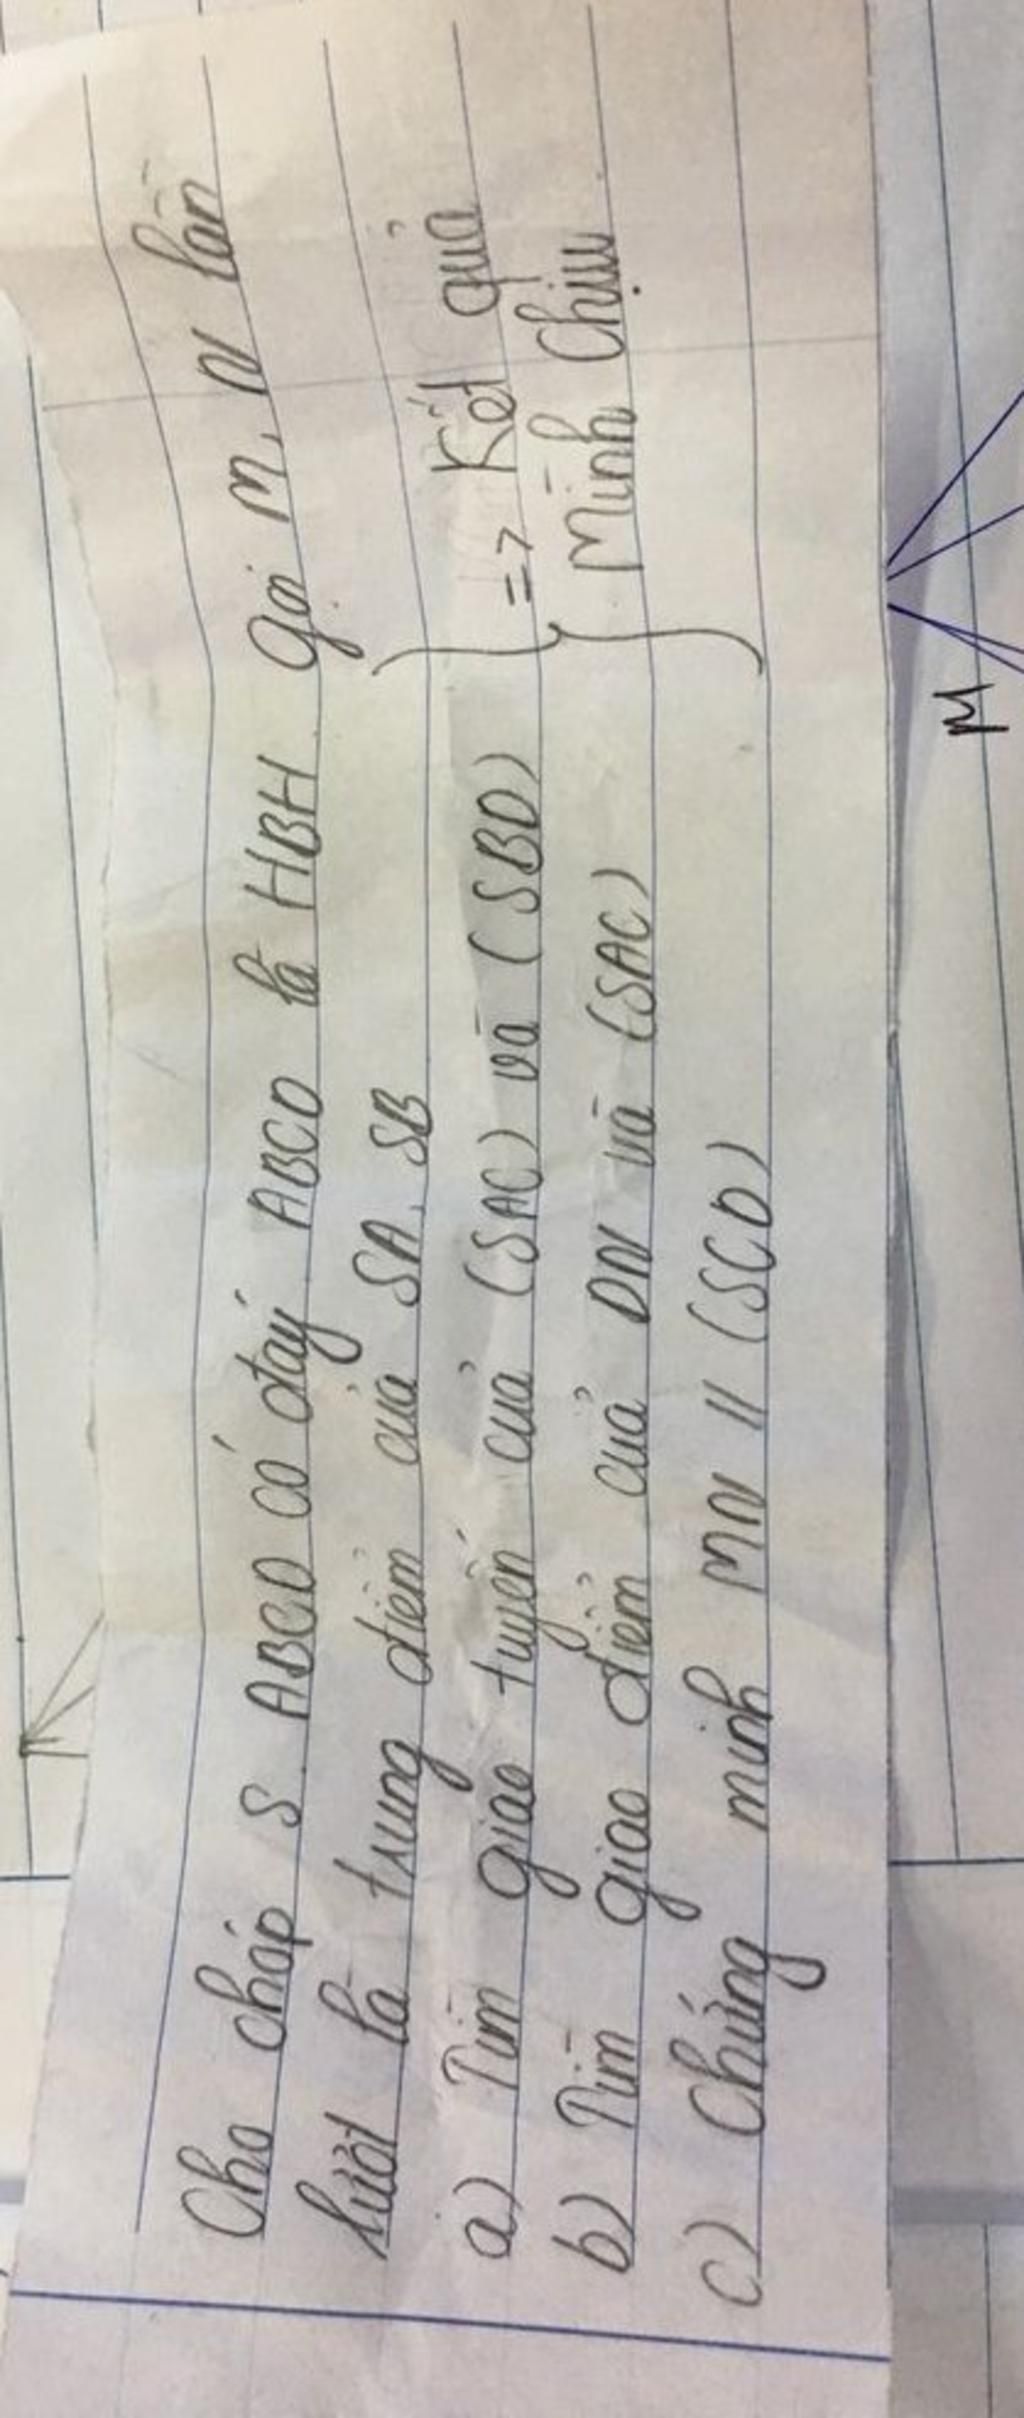 Cho chóp S ABCD có đáy ABCD là HBH gọi M, N lần
lượt là trung điểm của SA, SB
a) Tìm giao tuyến của (SAC) và (SBD)
b) Tìm giao điểm của DN và (SAC)
c) Chứng minh MN // (SCD)
=> Kết quả
Mình Chịu
M